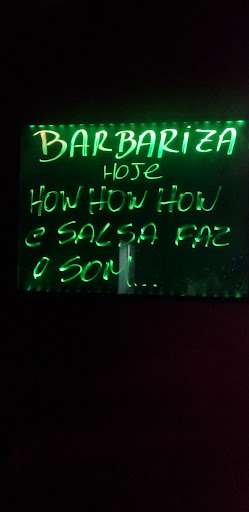 BARBARiZA
HOJe
HOW HOW HOW
e SALSA FAZ
O SOM...